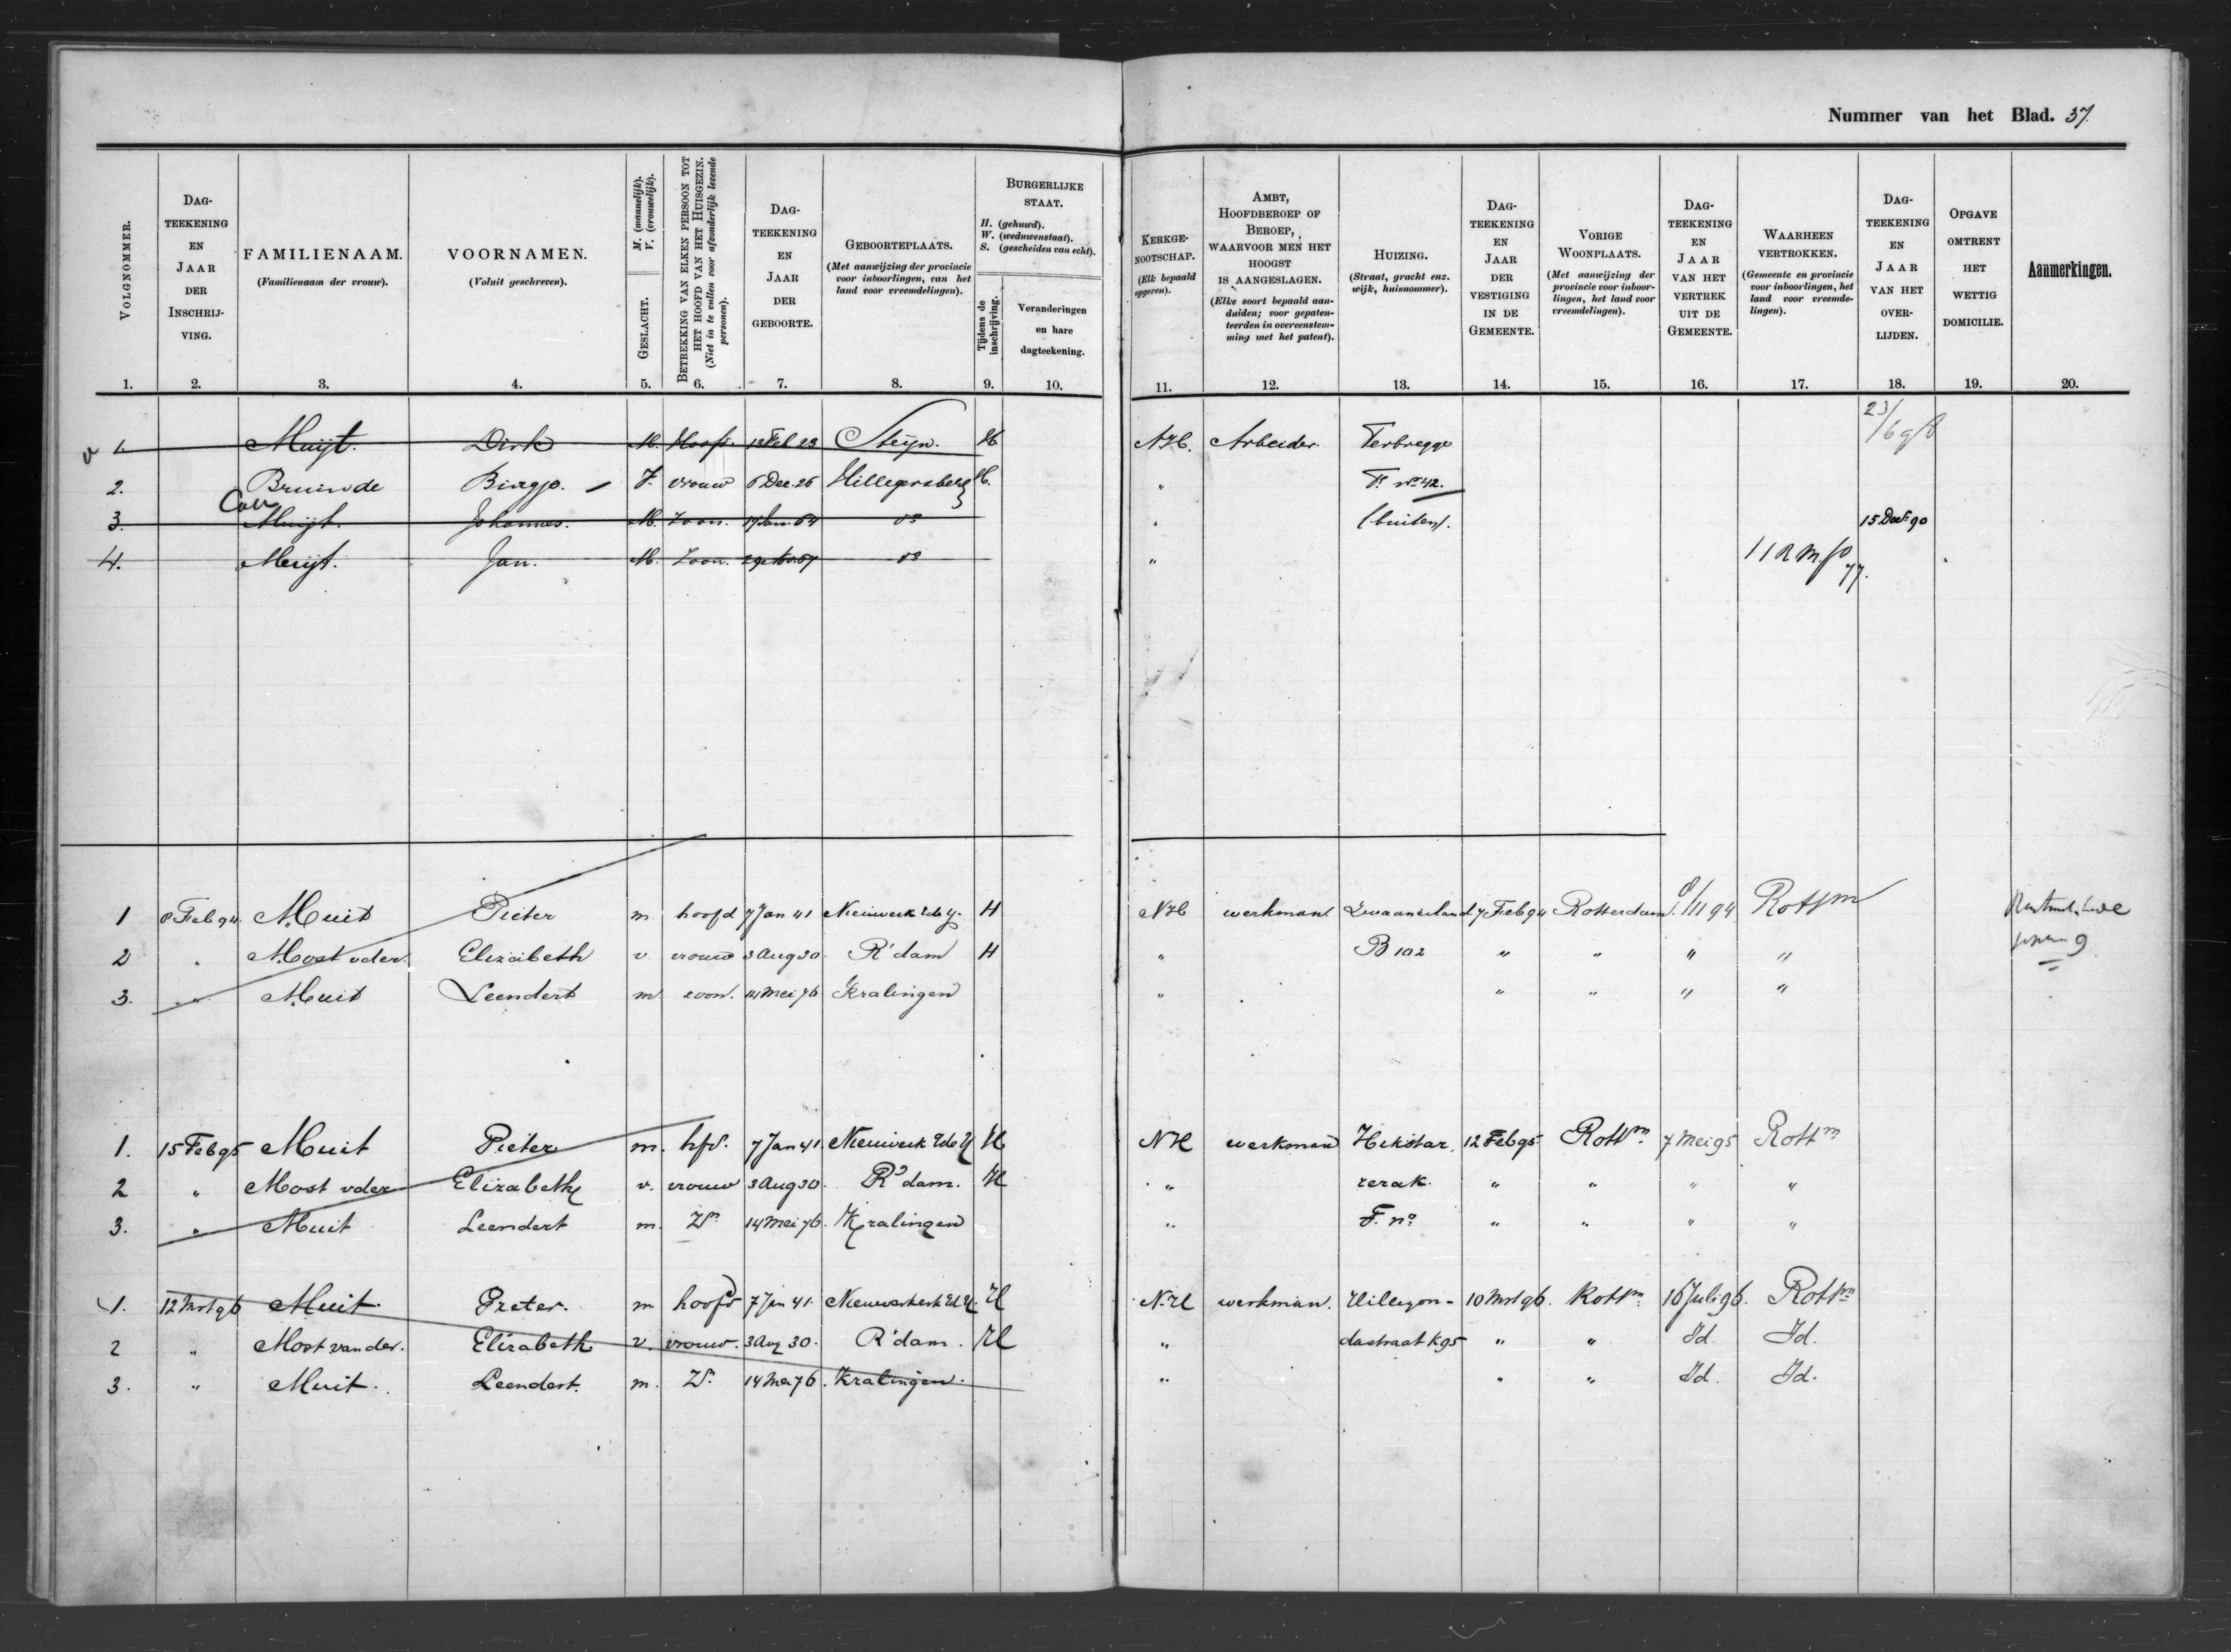 Nummer van het Blad. 37.
VOLGNOMMER.
DAG-
TEEKENING
EN
JAAR
DER
INSCHRIJ-
VING.
FAMILIENAAM.
(Familienaam der vrouw).
VOORNAMEN.
(Voluit geschreven).
M. (mannelijk).
V. (vrouwelijk).
GESLACHT.
BETREKKING VAN ELKEN PERSOON TOT
HET HOOFD VAN HET HUISGEZIN.
(Niet in te vullen voor afzonderlijk levende
personen).
DAG-
TEEKENING
EN
JAAR
DER
GEBOORTE.
GEBOORTEPLAATS.
(Met aanwijzing der provincie
voor inboorlingen, van het
land voor vreemdelingen).
BURGERLIJKE
STAAT.
H. (gehuwd).
W. (weduwenstaat).
S. (gescheiden van echt).
Tijdens de
inschrijving.
Veranderingen
en hare
dagteekening.
KERKGE-
NOOTSCHAP.
(Elk bepaald
opgeven).
AMBT,
HOOFDBEROEP OF
BEROEP,
WAARVOOR MEN HET
HOOGST
IS AANGESLAGEN.
(Elke soort bepaald aan-
duiden; voor gepaten-
teerden in overeenstem-
ming met het patent).
HUIZING.
(Straat, gracht enz.
wijk, huisnommer).
DAG-
TEEKENING
EN
JAAR
DER
VESTIGING
IN DE
GEMEENTE.
VORIGE
WOONPLAATS.
(Met aanwijzing der
provincie voor inboor-
lingen, het land voor
vreemdelingen).
DAG-
TEEKENING
EN
JAAR
VAN HET
VERTREK
UIT DE
GEMEENTE.
WAARHEEN
VERTROKKEN.
(Gemeente en provincie
voor inboorlingen, het
land voor vreemde-
lingen).
DAG-
TEEKENING
EN
JAAR
VAN HET
OVER-
LIJDEN.
OPGAVE
OMTRENT
HET
WETTIG
DOMICILIE.
Aanmerkingen.
1. 2. 3. 4. 5. 6. 7. 8. 9. 10. 11. 12. 13. 14. 15. 16. 17. 18. 19. 20.
v 1. Muijt. Dirk M. Hoofd 12 Feb 23 Steyn. H N.H. Arbeider Terbregge 23/6 98
2. Bruin de Bingje. V. vrouw 6 Dec. 26 Hillegersberg H. " Tr. No 42.
3. Muijt. Johannes. M. Zoon. 17 Jan. 64 do " (buiten). 15 Dec 90
4. Muijt. Jan. M. Zoon. 29 Nov. 67 do "
1 8 Feb 94 Muit Pieter m. hoofd 7 Jan 41 Nieuwerk a/d Y. H NH werkman Zwaanseland 7 Feb 94 Rotterdam 8/III 94 Rottm
2 " Most vder Elizabeth v vrouw 3 Aug 30 R'dam H " B 102 " " " "
3. " Muit Leendert m zoon. 14 Mei 76 Kralingen " " " " "
1. 15 Feb 95 Muit Pieter m. hfd. 7 Jan 41. Nieuwerk a/d Y H NH werkman Hekstar. 12 Feb 95 Rottm. 7 Mei 95 Rottm
2 " Most vder Elizabeth v. vrouw 3 Aug 30. R'dam. H " rerak. " " " "
3. " Muit Leendert m. Zn. 14 Mei 76. Kralingen " F. no " " " "
1. 12 Mrt 96 Muit Pieter. m hoofd 7 Jan 41. Nieuwerkerk a/d Y. H N.H werkman. Hillegon- 10 Mrt 96. Rottm. 16 Juli 96. Rottm
2 " Most van der. Elizabeth v. vrouw. 3 Aug 30. R'dam. H " dastraat K 95 " " Id. Id.
3. " Muit. Leendert. m. Zn. 14 Mei 76. Kralingen. " " " Id. Id.